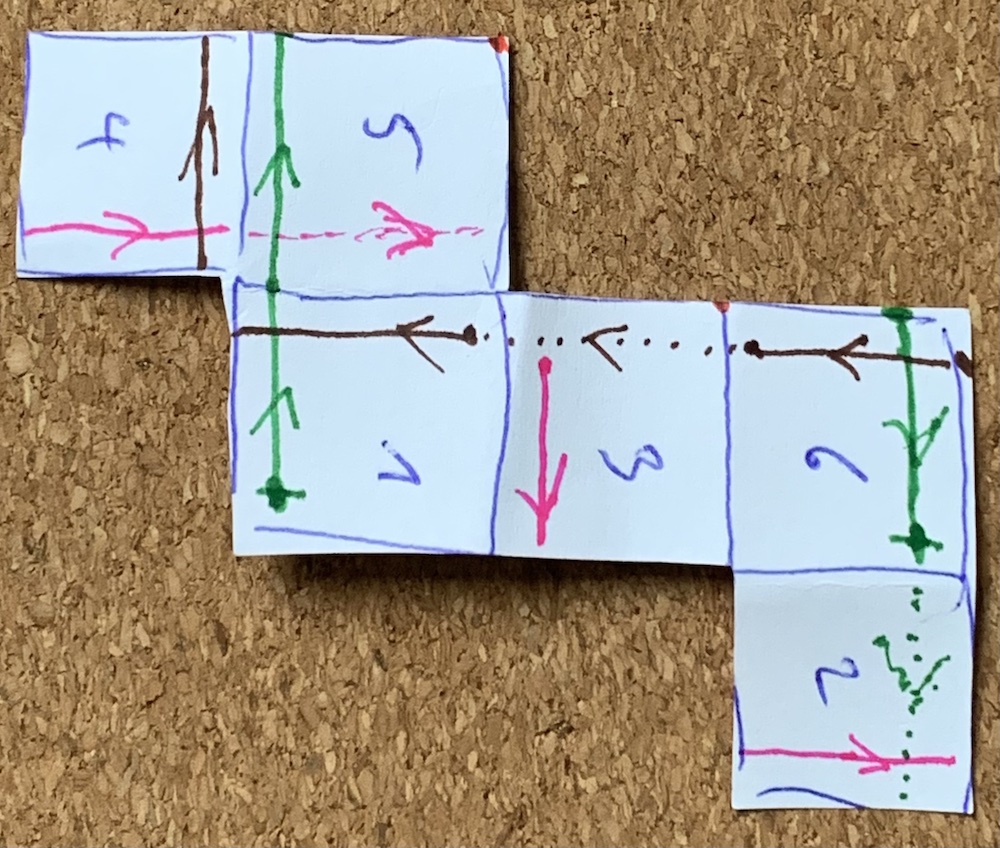 4 5
1 3 6
2